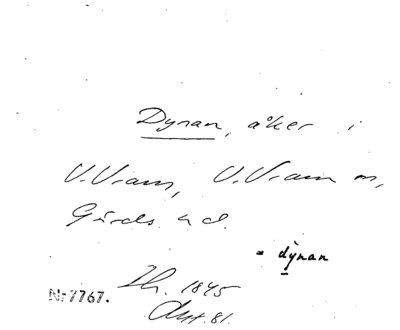 Dynan, åker i
V. Vram, V. Vram sn,
Gärds hd.
= dynan
Nr 7767. 1845
Akt. 81.